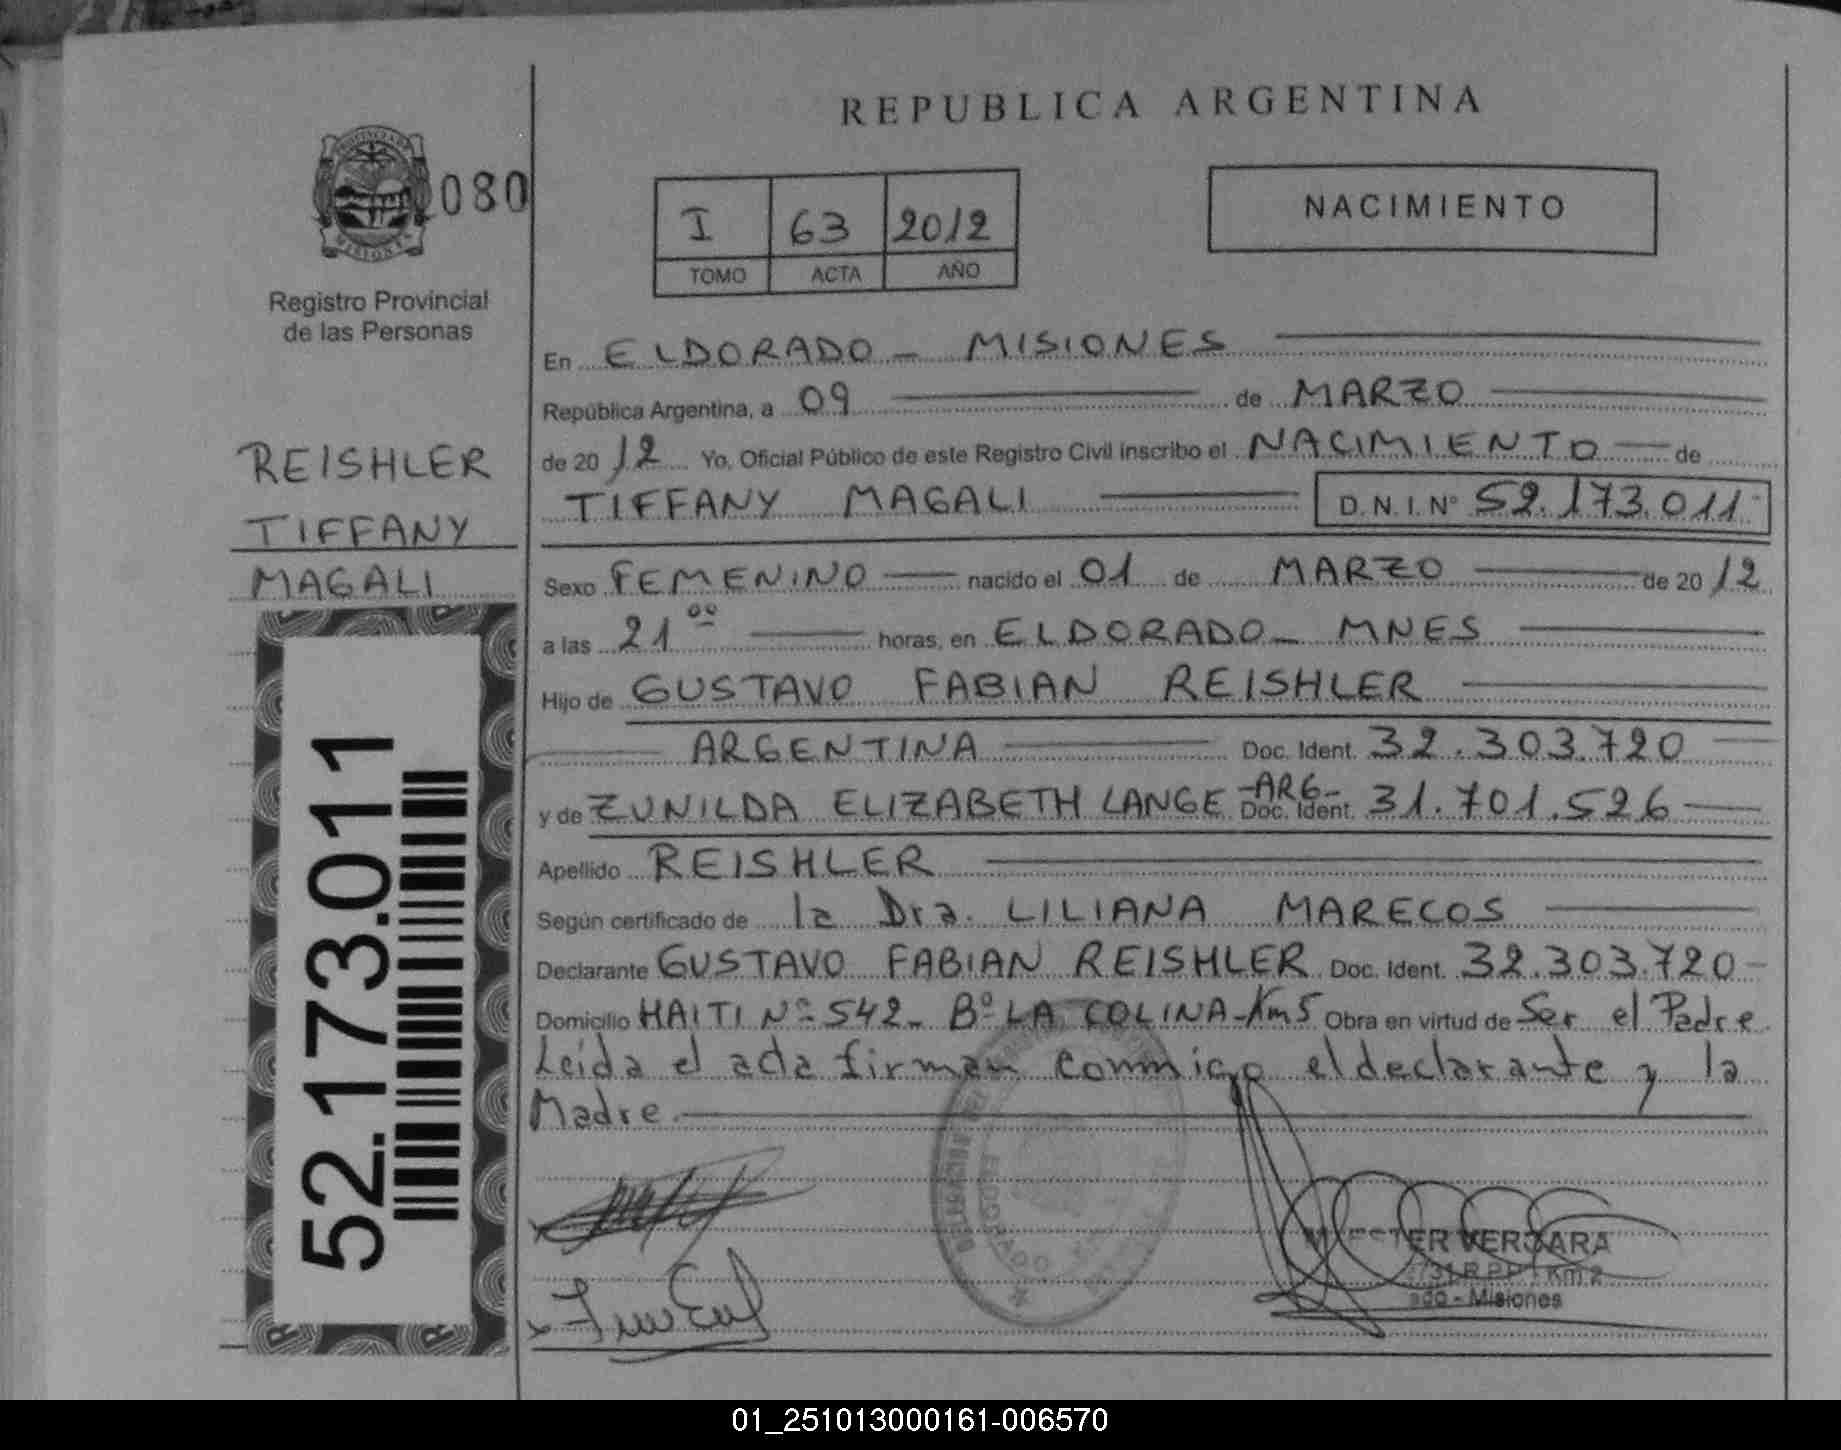 REPUBLICA ARGENTINA
080
PROVINCIA DE
MISIONES
Registro Provincial
de las Personas
I 63 2012
TOMO ACTA AÑO
NACIMIENTO
REISHLER
TIFFANY
MAGALI
52.173.011
En ELDORADO - MISIONES
República Argentina, a 09 de MARZO
de 20 12 Yo, Oficial Público de este Registro Civil inscribo el NACIMIENTO de
TIFFANY MAGALI D.N.I. Nº 52.173.011
Sexo FEMENINO nacido el 01 de MARZO de 20 12
a las 21 00 horas, en ELDORADO - MNES
Hijo de GUSTAVO FABIAN REISHLER
ARGENTINA Doc. Ident. 32.303.720
y de ZUNILDA ELIZABETH LANGE -ARG- Doc. Ident. 31.701.526
Apellido REISHLER
Según certificado de la Dra. LILIANA MARECOS
Declarante GUSTAVO FABIAN REISHLER Doc. Ident. 32.303.720
Domicilio HAITI Nº 542 - Bº LA COLINA - Km 5 Obra en virtud de Ser el Padre
Leida el acta firman conmigo el declarante y la
Madre.
ELDORADO
VERGARA
Km 2
ado - Misiones
01_251013000161-006570